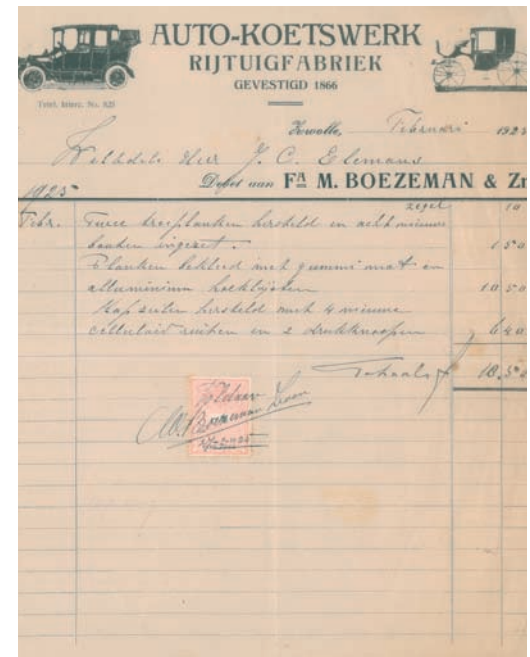 AUTO-KOETSWERK
RIJTUIGFABRIEK
GEVESTIGD 1866
Telef. Interc. No. 825
Zwolle, Februari 1925
Heer J. C. Elemans
Debet aan FA M. BOEZEMAN & Zn
1925
zegel 10
Febr. Twee treeplanken hersteld en acht nieuwe
bouten ingezet. 1 50
Planken bekleed met gummi mat en
alluminium hoeklijsten 10 50
Kapzeilen hersteld met 4 nieuwe
celluloid ruiten en 2 drukknoopen 6 40
Totaal f 18,50
Voldaan
M. Boezeman & Zoon